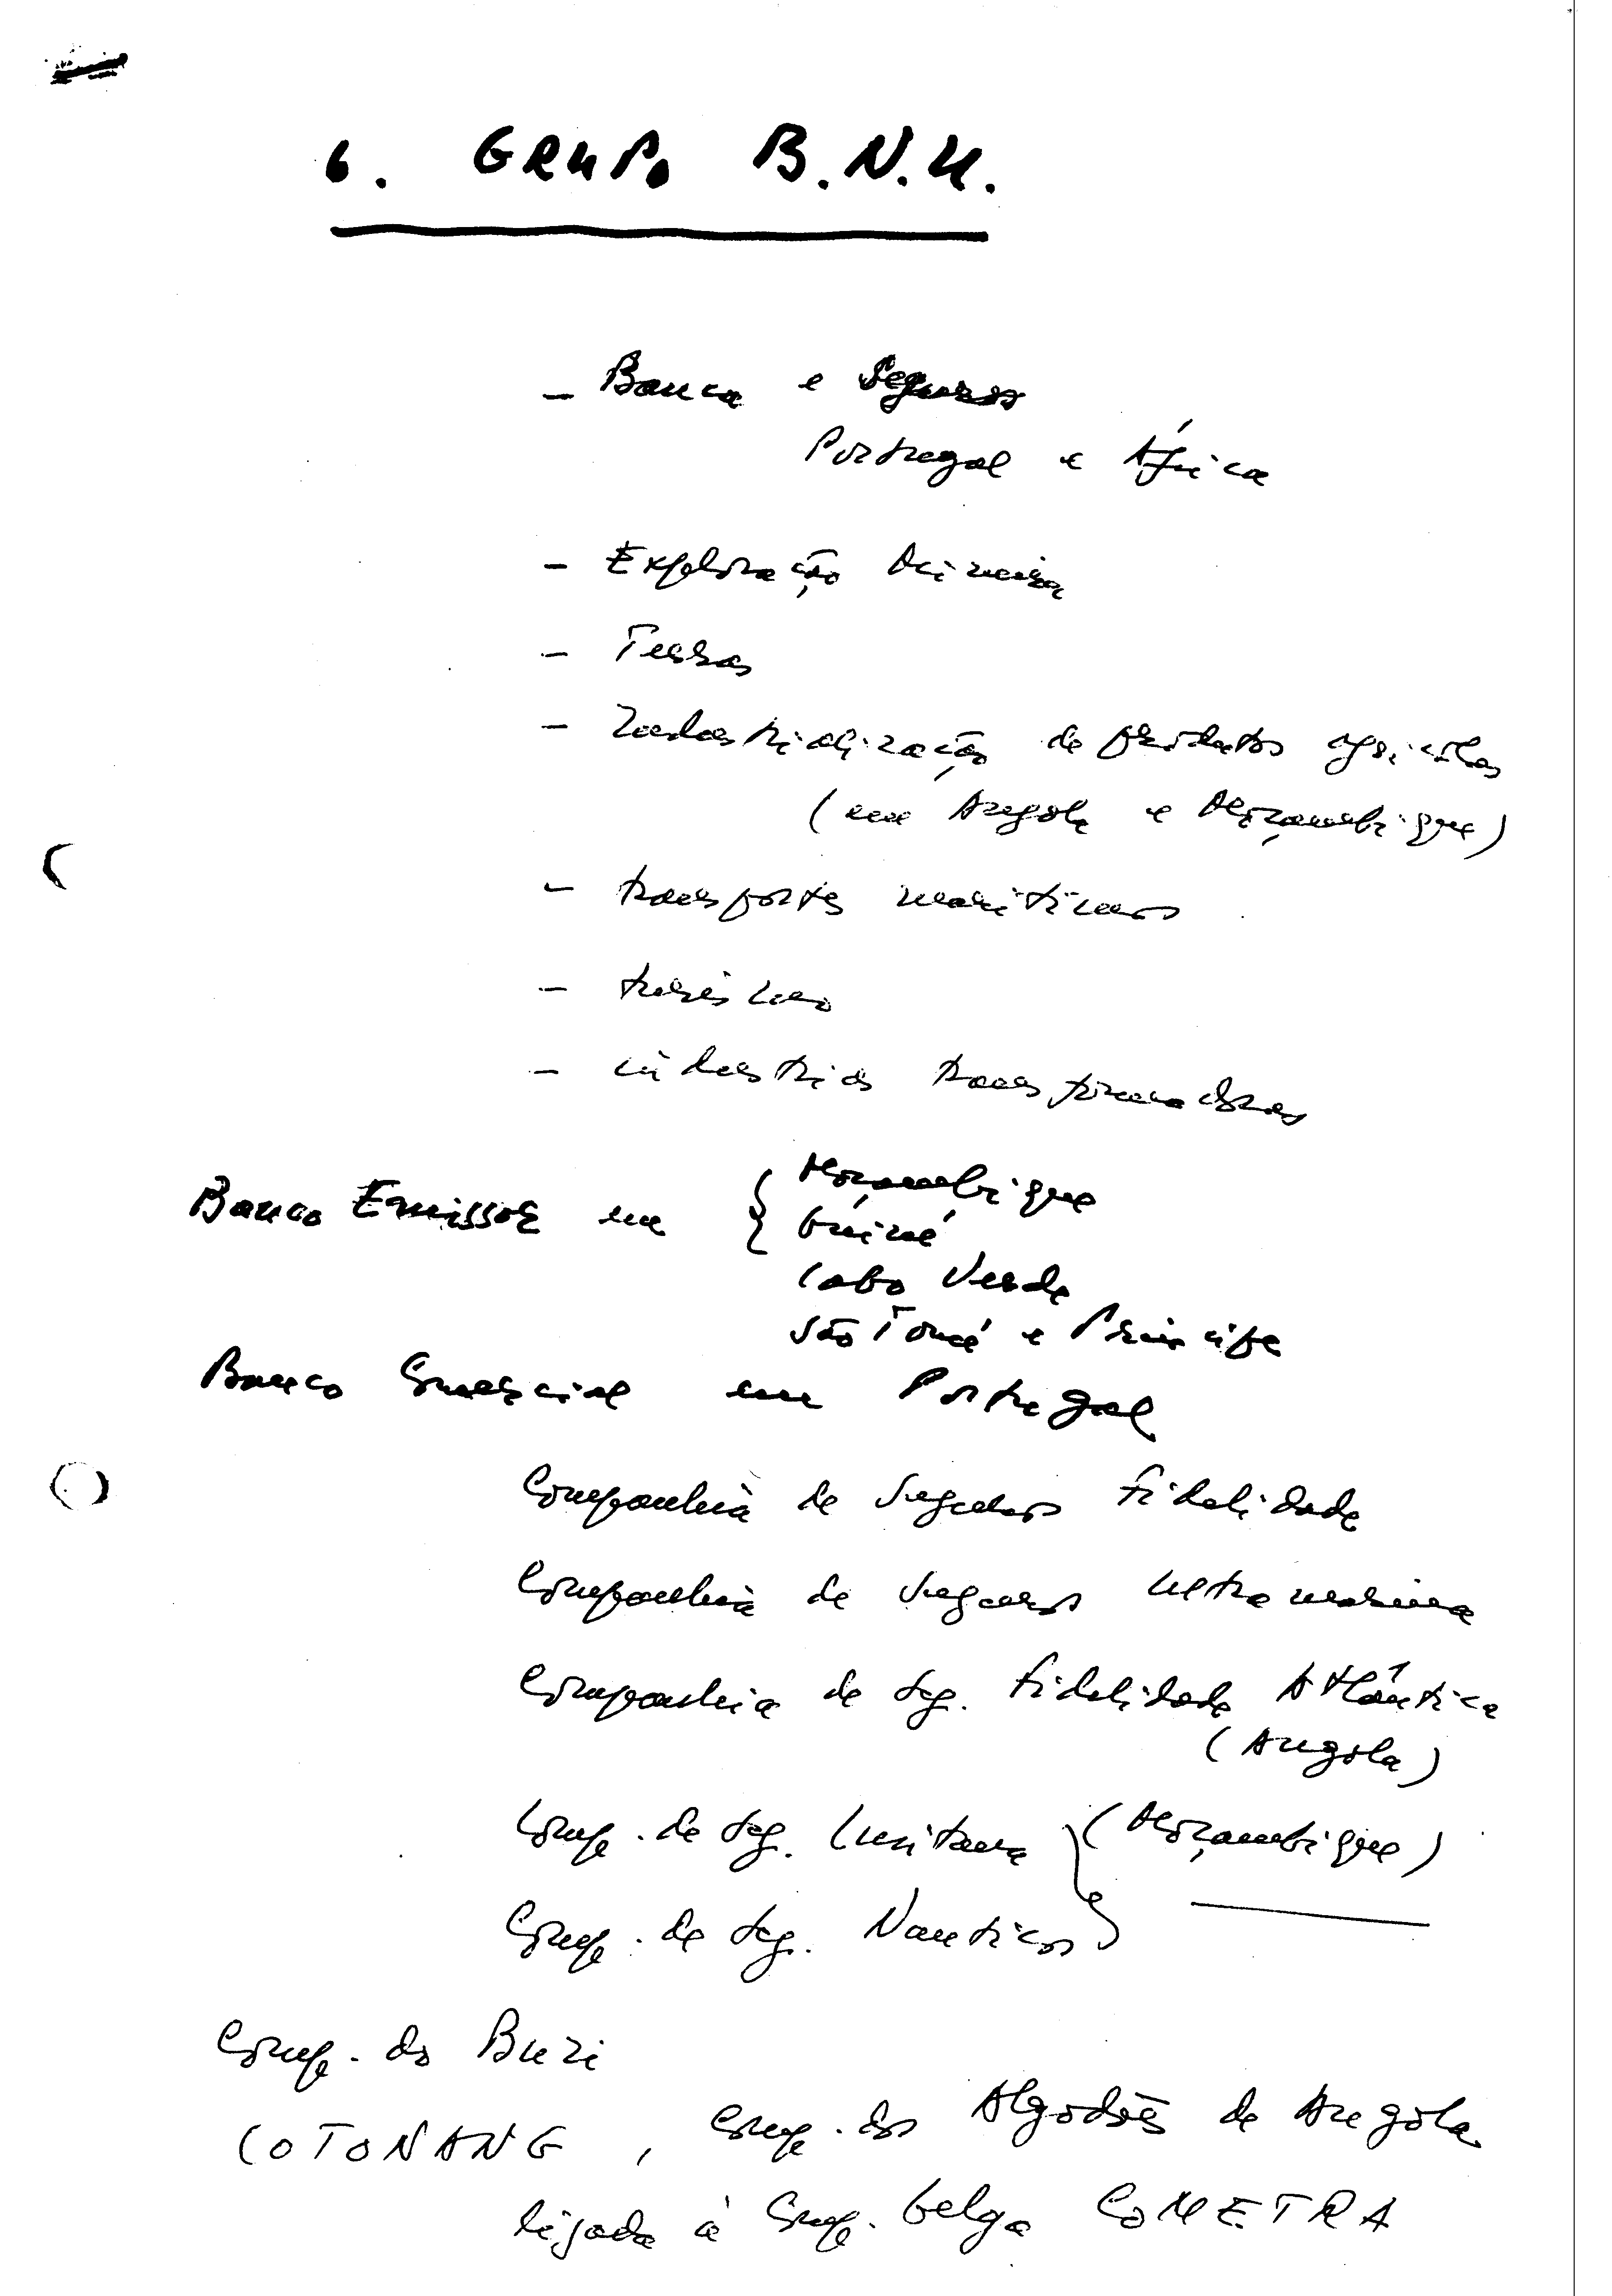 6. GRUPO B.N.U.
- Banca e Seguros
Portugal e África
- Exploração Mineira
- Terras
- Industrialização de produtos agrícolas
(em Angola e Moçambique)
- transportes marítimos
- turismo
- indústrias transformadoras
Banco Emissor em { Moçambique
Guiné
Cabo Verde
São Tomé e Príncipe
Banco Comercial em Portugal
Companhia de Seguros Fidelidade
Companhia de Seguros Ultramarina
Companhia de Seg. Fidelidade Atlântica
(Angola)
Comp. de Seg. Lusitana } (Moçambique)
Comp. de Seg. Nauticos
Comp. do Buzi
COTONANG, Comp. dos Algodões de Angola
ligada à Comp. belga COMETRA